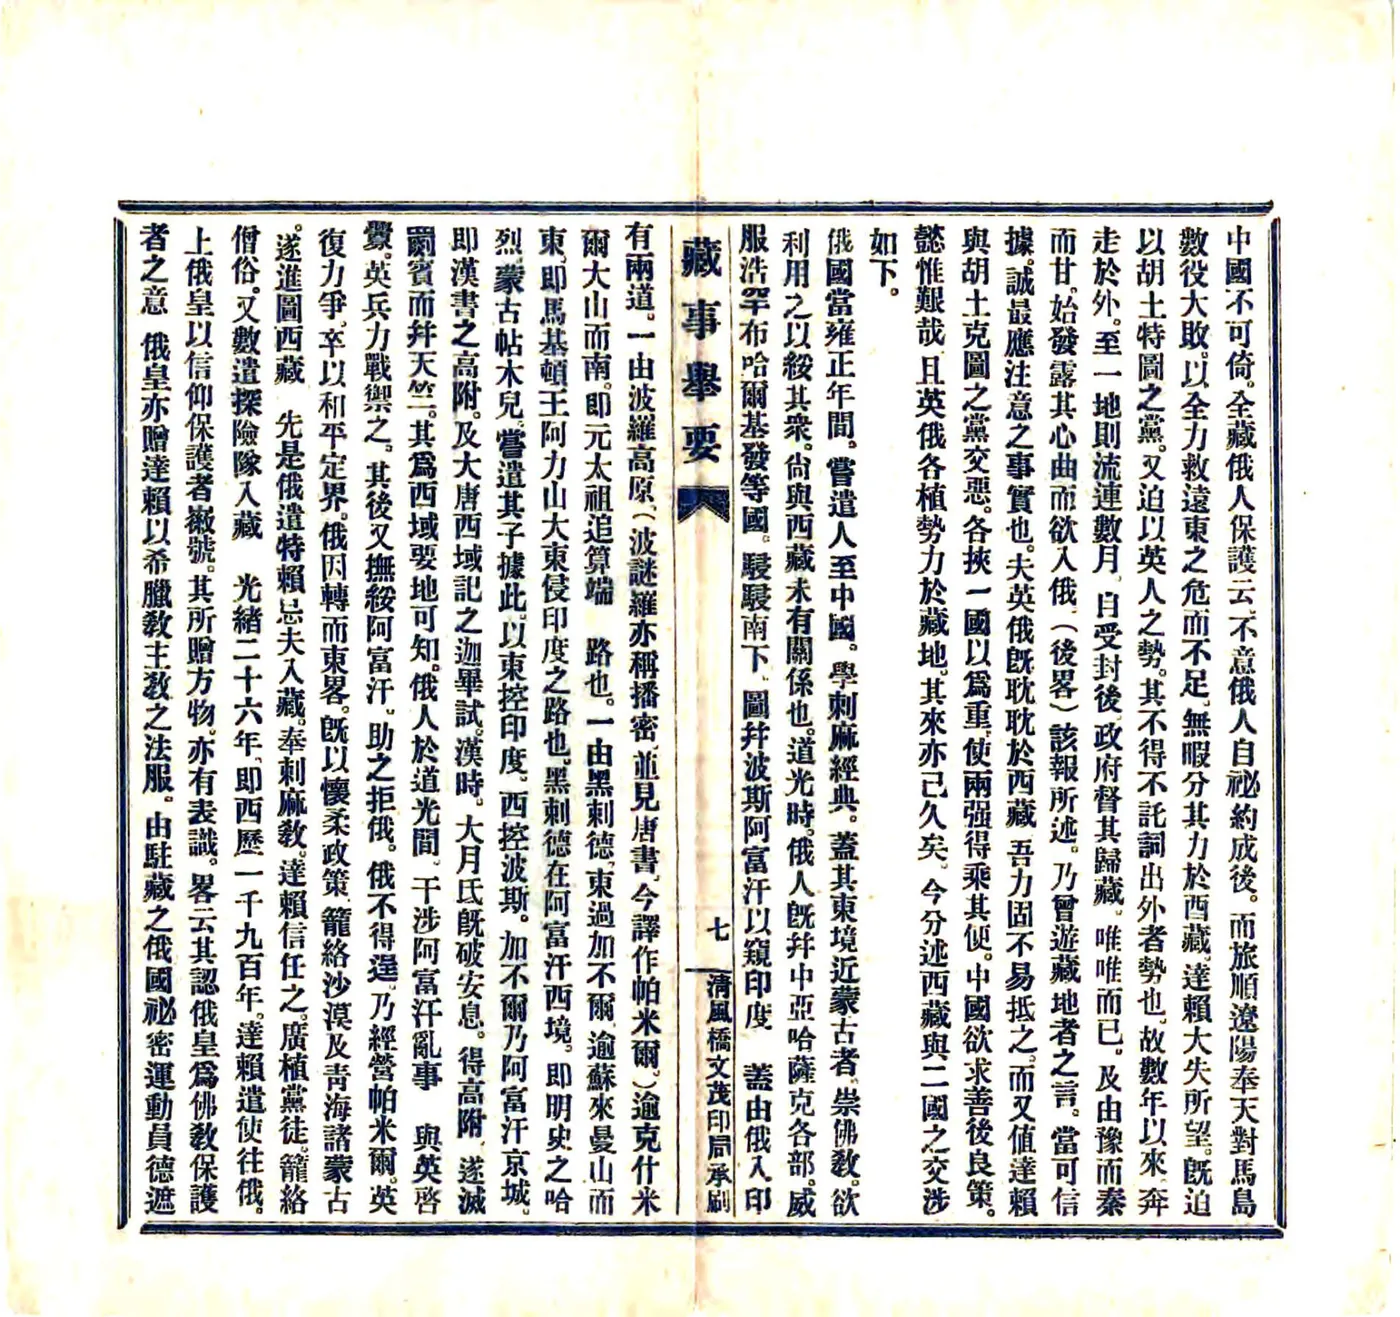 中國不可倚。全藏俄人保護云、不意俄人自祕約成後。而旅順遼陽奉天對馬島
數役大敗。以全力救遠東之危而不足。無暇分其力於酉藏。達賴大失所望。旣迫
以胡土特圖之黨。又迫以英人之勢。其不得不託詞出外者勢也。故數年以來、奔
走於外。至一地則流連數月、自受封後、政府督其歸藏。唯唯而已。及由豫而秦
而甘。始發露其心曲而欲入俄（後畧）該報所述。乃曾遊藏地者之言。當可信
據。誠最應注意之事實也。夫英俄旣耽耽於西藏、吾力固不易抵之、而又值達賴
與胡土克圖之黨交惡。各挾一國以爲重、使兩强得乘其便。中國欲求善後良策。
懿惟艱哉、且英俄各植勢力於藏地。其來亦已久矣。今分述西藏與二國之交涉
如下。
俄國當雍正年間。嘗遣人至中國。學刺麻經典。蓋其東境近蒙古者、崇佛敎。欲
利用之以綏其衆。尙與西藏未有關係也。道光時。俄人旣幷中亞哈薩克各部。威
服浩罕布哈爾基發等國。駸駸南下、圖幷波斯阿富汗以窺印度　蓋由俄入印
藏事舉要
七
淸風橋文茂印局承刷
有兩道。一由波羅高原、（波謎羅亦稱播密、並見唐書、今譯作帕米爾。）逾克什米
爾大山而南。卽元太祖追算端　路也。一由黑刺德、東過加不爾、逾蘇來曼山而
東、卽馬基頓王阿力山大東侵印度之路也。黑刺德在阿富汗西境。卽明史之哈
烈、蒙古帖木兒。嘗遣其子據此。以東控印度。西控波斯。加不爾乃阿富汗京城。
卽漢書之高附。及大唐西域記之迦畢試。漢時。大月氏旣破安息。得高附、遂滅
罽賓而幷天竺。其爲西域要地可知。俄人於道光間、干涉阿富汗亂事　與英啓
釁。英兵力戰禦之。其後又撫綏阿富汗。助之拒俄。俄不得逞。乃經營帕米爾。英
復力爭。卒以和平定界。俄因轉而東畧。旣以懷柔政策、籠絡沙漠及靑海諸蒙古
。遂進圖西藏　先是俄遣特賴忌夫入藏。奉刺麻敎。達賴信任之。廣植黨徒。籠絡
僧俗。又數遣探險隊入藏　光緒二十六年、卽西歷一千九百年。達賴遣使往俄。
上俄皇以信仰保護者徽號。其所贈方物。亦有表識。畧云其認俄皇爲佛敎保護
者之意　俄皇亦贈達賴以希臘敎主敎之法服。由駐藏之俄國祕密運動員德遮